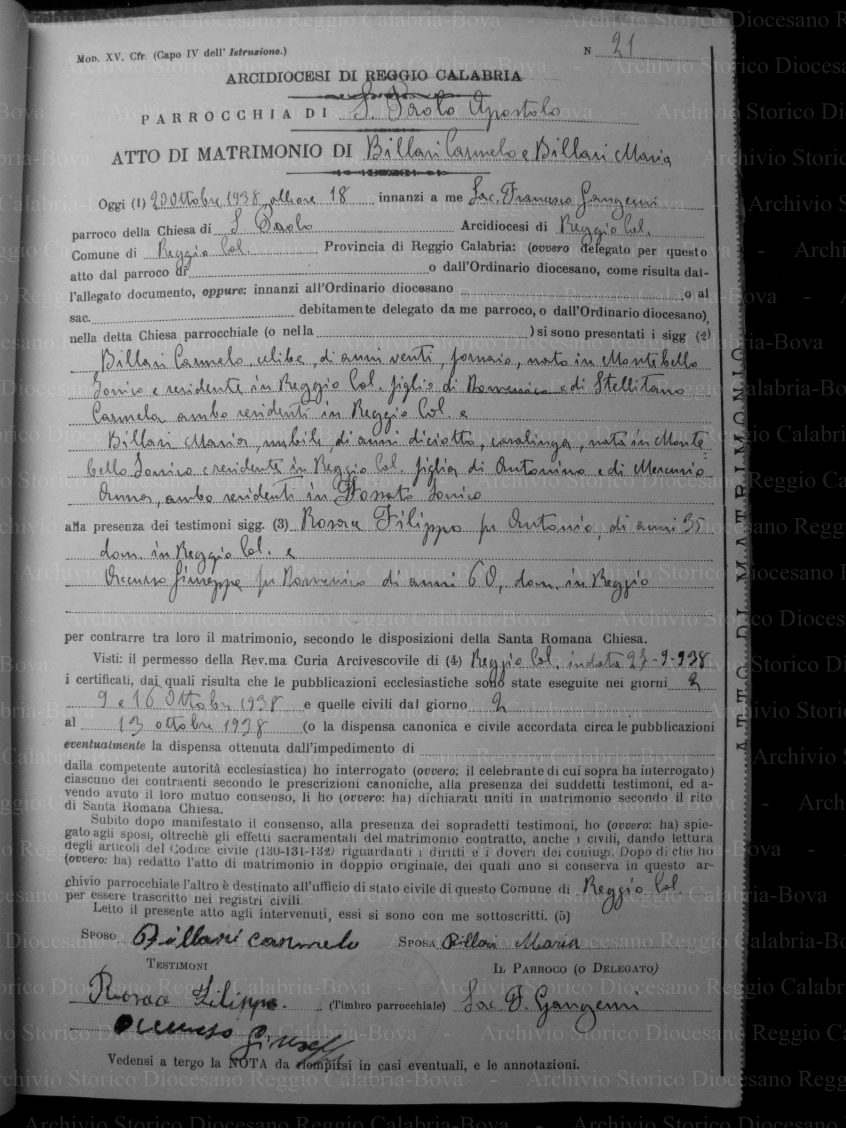 Mod. XV. Cfr. (Capo IV dell' Istruzione.)
N 21
ARCIDIOCESI DI REGGIO CALABRIA
PARROCCHIA DI S. Paolo Apostolo
ATTO DI MATRIMONIO DI Billari Carmelo e Billari Maria
Oggi (1) 20 Ottobre 1938, alle ore 18 innanzi a me Sac. Francesco Gangemi
parroco della Chiesa di S. Paolo Arcidiocesi di Reggio Cal.
Comune di Reggio Cal. Provincia di Reggio Calabria: (ovvero delegato per questo
atto dal parroco di o dall'Ordinario diocesano, come risulta dal-
l'allegato documento, oppure: innanzi all'Ordinario diocesano , o al
sac. debitamente delegato da me parroco, o dall'Ordinario diocesano),
nella detta Chiesa parrocchiale (o nella ) si sono presentati i sigg (2)
Billari Carmelo, celibe, di anni venti, fornaio, nato in Montebello
Jonico e residente in Reggio Cal. figlio di Domenico e di Stellitano
Carmela ambo residenti in Reggio Cal. e
Billari Maria, nubile, di anni diciotto, casalinga, nata in Monte
bello Jonico e residente in Reggio Cal. figlia di Antonino e di Mercurio
Anna, ambo residenti in Fossato Jonico
alla presenza dei testimoni sigg. (3) Rosace Filippo fu Antonio, di anni 35
dom. in Reggio Cal. e
Occurso Giuseppe fu Domenico di anni 60, dom. in Reggio
per contrarre tra loro il matrimonio, secondo le disposizioni della Santa Romana Chiesa.
Visti: il permesso della Rev.ma Curia Arcivescovile di (4) Reggio Cal. in data 27-9-938
i certificati, dai quali risulta che le pubblicazioni ecclesiastiche sono state eseguite nei giorni 2
9 e 16 Ottobre 1938 e quelle civili dal giorno 2
al 13 ottobre 1938 (o la dispensa canonica e civile accordata circa le pubblicazioni
eventualmente la dispensa ottenuta dall'impedimento di
dalla competente autorità ecclesiastica) ho interrogato (ovvero: il celebrante di cui sopra ha interrogato)
ciascuno dei contraenti secondo le prescrizioni canoniche, alla presenza dei suddetti testimoni, ed a-
vendo avuto il loro mutuo consenso, li ho (ovvero: ha) dichiarati uniti in matrimonio secondo il rito
di Santa Romana Chiesa.
Subito dopo manifestato il consenso, alla presenza dei sopradetti testimoni, ho (ovvero: ha) spie-
gato agli sposi, oltrechè gli effetti sacramentali del matrimonio contratto, anche i civili, dando lettura
degli articoli del Codice civile (130-131-132) riguardanti i diritti e i doveri dei coniugi. Dopo di che ho
(ovvero: ha) redatto l'atto di matrimonio in doppio originale, dei quali uno si conserva in questo ar-
chivio parrocchiale l'altro è destinato all'ufficio di stato civile di questo Comune di Reggio Cal.
per essere trascritto nei registri civili
Letto il presente atto agli intervenuti, essi si sono con me sottoscritti. (5)
SPOSO Billari Carmelo SPOSA Billari Maria
TESTIMONI IL PARROCO (O DELEGATO)
Rosace Filippo. (Timbro parrocchiale) Sac. F. Gangemi
Occurso Giuseppe
Vedensi a tergo la NOTA da riempirsi in casi eventuali, e le annotazioni.
ATTO DI MATRIMONIO
Archivio Storico Diocesano Reggio Calabria-Bova